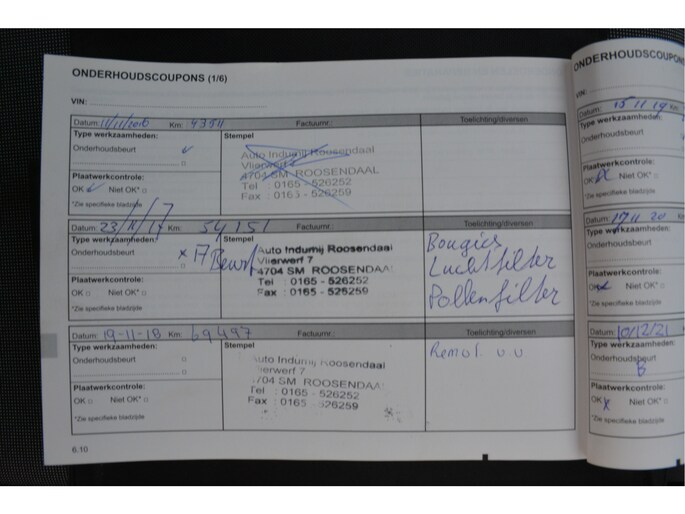 ONDERHOUDSCOUPONS (1/6)
VIN:
Datum: 11/11/2016 Km: 43511 Factuurnr.: Toelichting/diversen
Type werkzaamheden: Stempel
Onderhoudsbeurt ✓
Auto Indumij Roosendaal
Vlierwerf 7
4704 SM ROOSENDAAL
Tel : 0165 - 526252
Fax : 0165 - 526259
Plaatwerkcontrole:
OK ✓ Niet OK* □
*Zie specifieke bladzijde
Datum: 23/11/17 Km: 54151 Factuurnr.: Toelichting/diversen
Type werkzaamheden: Stempel
Onderhoudsbeurt x 17 Beurt
Auto Indumij Roosendaal
Vlierwerf 7
4704 SM ROOSENDAAL
Tel : 0165 - 526252
Fax : 0165 - 526259
Bougies
Luchtfilter
Pollenfilter
Plaatwerkcontrole:
OK □ Niet OK* □
*Zie specifieke bladzijde
Datum: 19-11-18 Km: 69497 Factuurnr.: Toelichting/diversen
Type werkzaamheden: Stempel
Onderhoudsbeurt □
Auto Indumij Roosendaal
Vlierwerf 7
4704 SM ROOSENDAAL
Tel : 0165 - 526252
Fax : 0165 - 526259
Plaatwerkcontrole:
OK □ Niet OK* □
*Zie specifieke bladzijde
6.10
ONDERHOUDSCOUPON
VIN:
Datum: 15 11 19 Km:
Type werkzaamheden:
Onderhoudsbeurt
Plaatwerkcontrole:
OK x Niet OK* □
*Zie specifieke bladzijde
Datum: 17 11 20 Km:
Type werkzaamheden:
Onderhoudsbeurt
Plaatwerkcontrole:
OK x Niet OK* □
*Zie specifieke bladzijde
Datum: 10/12/21
Type werkzaamheden:
Onderhoudsbeurt
B
Plaatwerkcontrole:
OK x Niet OK* □
*Zie specifieke bladzijde